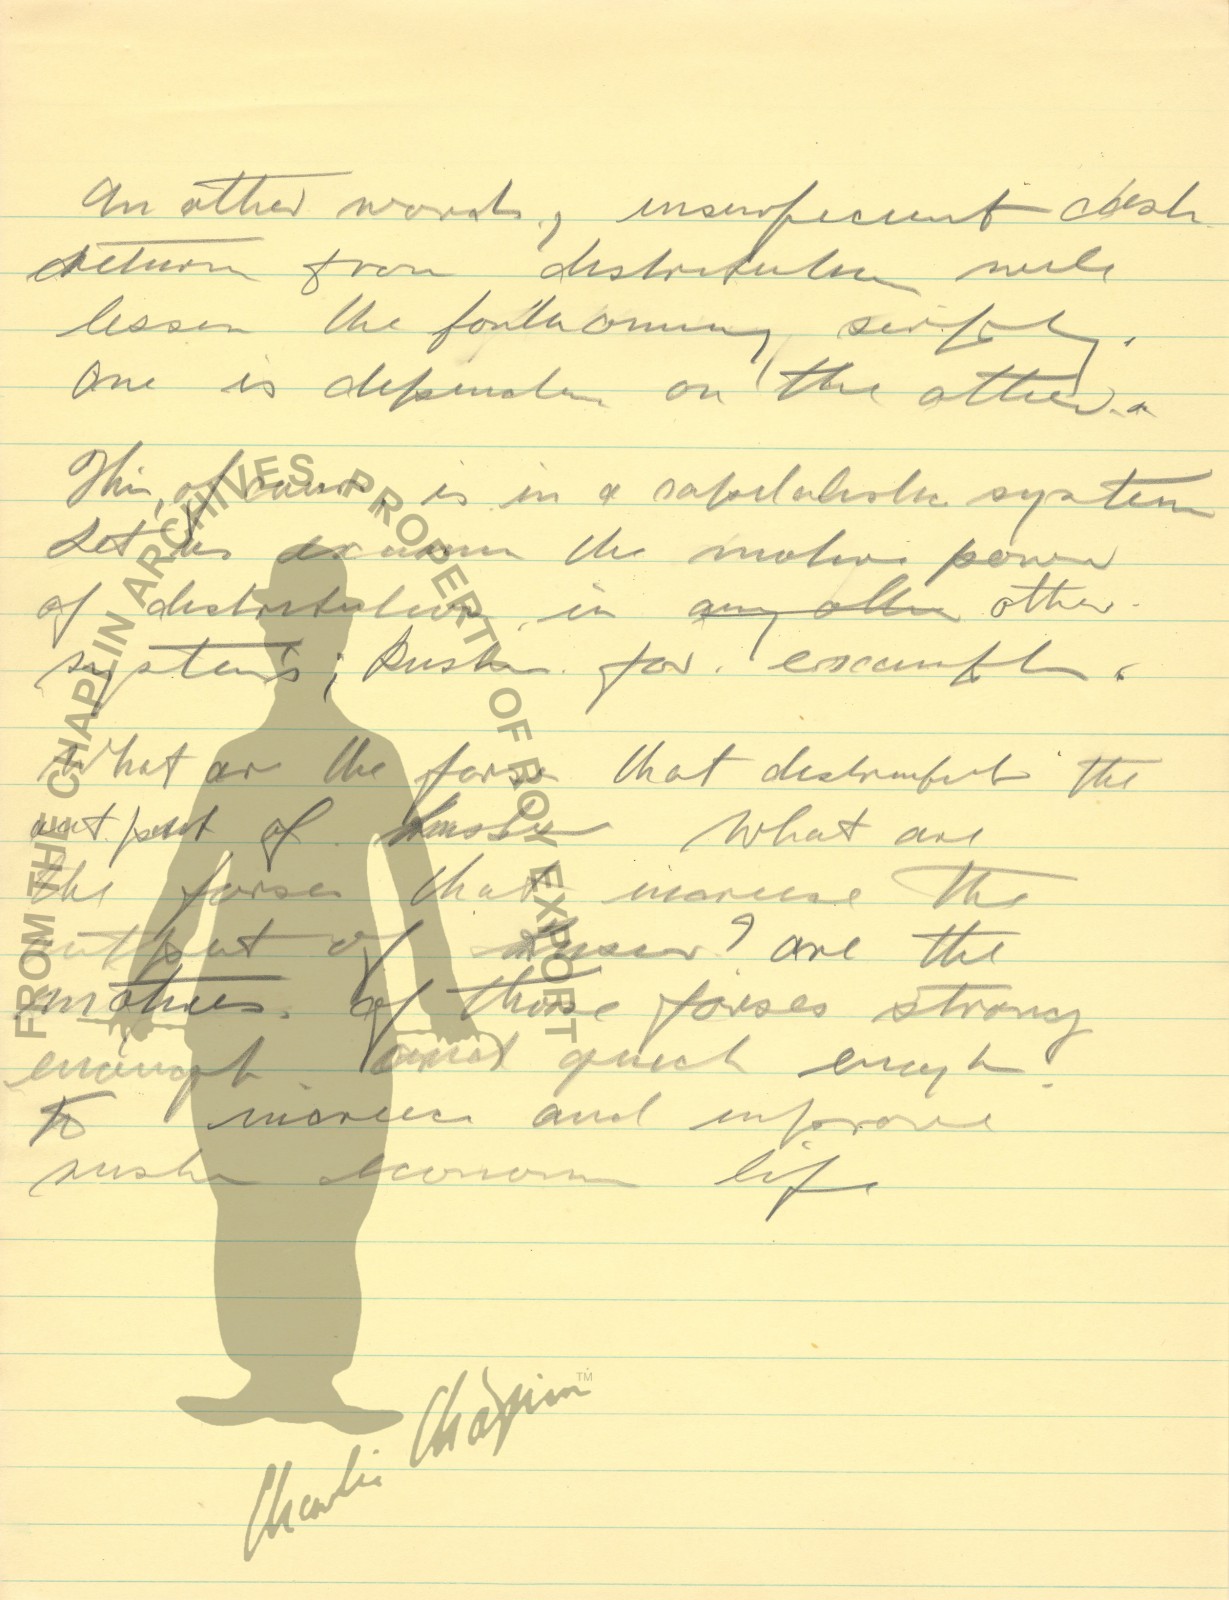 In other words, insufficient cash
return from distribution will
lessen the forthcoming supply.
One is dependen on the other.
This, of course, is in a capitalistic system
Let us examin the motive power
of distribution, in any other other
systems; Russia for example.
What are the forses that distribute the
out put of Russia What are
the forses that increse the
output of Russia? are the
motives. of those forses strong
enough and quick enough
to increse and improve
russia economic life
FROM THE CHAPLIN ARCHIVES, PROPERTY OF ROY EXPORT
Charlie Chaplin™